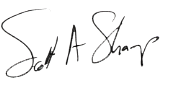 Scott A Sharp